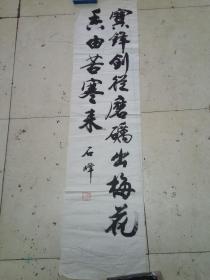 寶鋒劍從磨礪出梅花
香由苦寒来
石峰